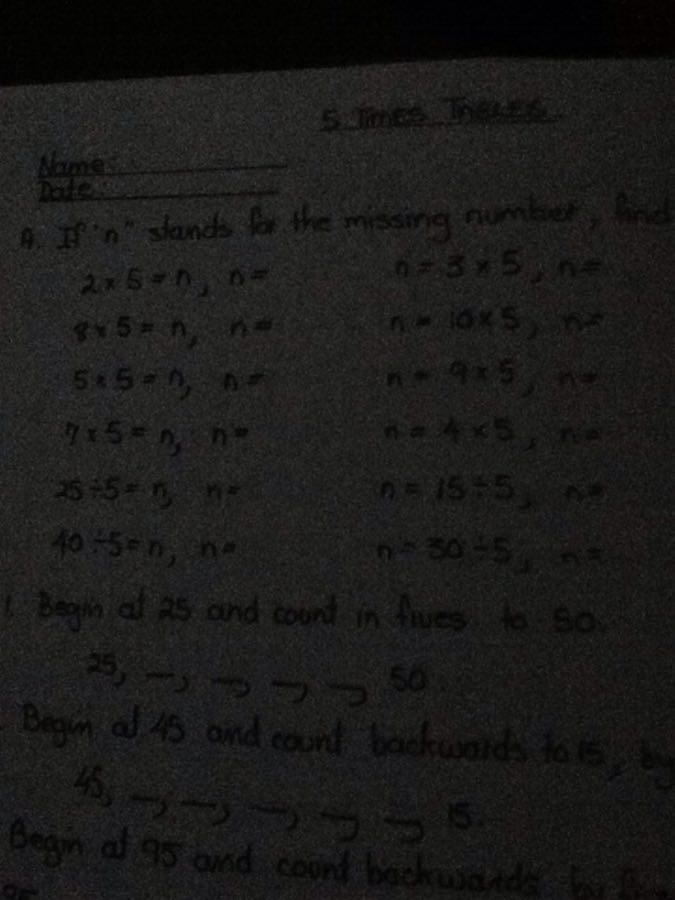 5 Times Tables
Name:
Date:
A. If "n" stands for the missing number, find
2 x 5 = n, n =
n = 3 x 5, n =
8 x 5 = n, n =
n = 10 x 5, n =
5 x 5 = n, n =
n = 9 x 5, n =
7 x 5 = n, n =
n = 4 x 5, n =
25 ÷ 5 = n, n =
n = 15 ÷ 5, n =
40 ÷ 5 = n, n =
n = 30 ÷ 5, n =
1. Begin at 25 and count in fives to 50.
25, _, _, _, _, 50.
Begin at 45 and count backwards to 15, by
45, _, _, _, _, _, 15.
Begin at 95 and count backwards by
95